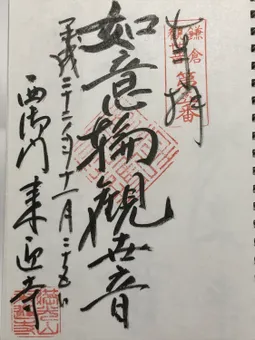 奉拝
鎌倉
観音
第五番
如意輪観世音
平成二十二年十一月二十五日
西御門 来迎寺